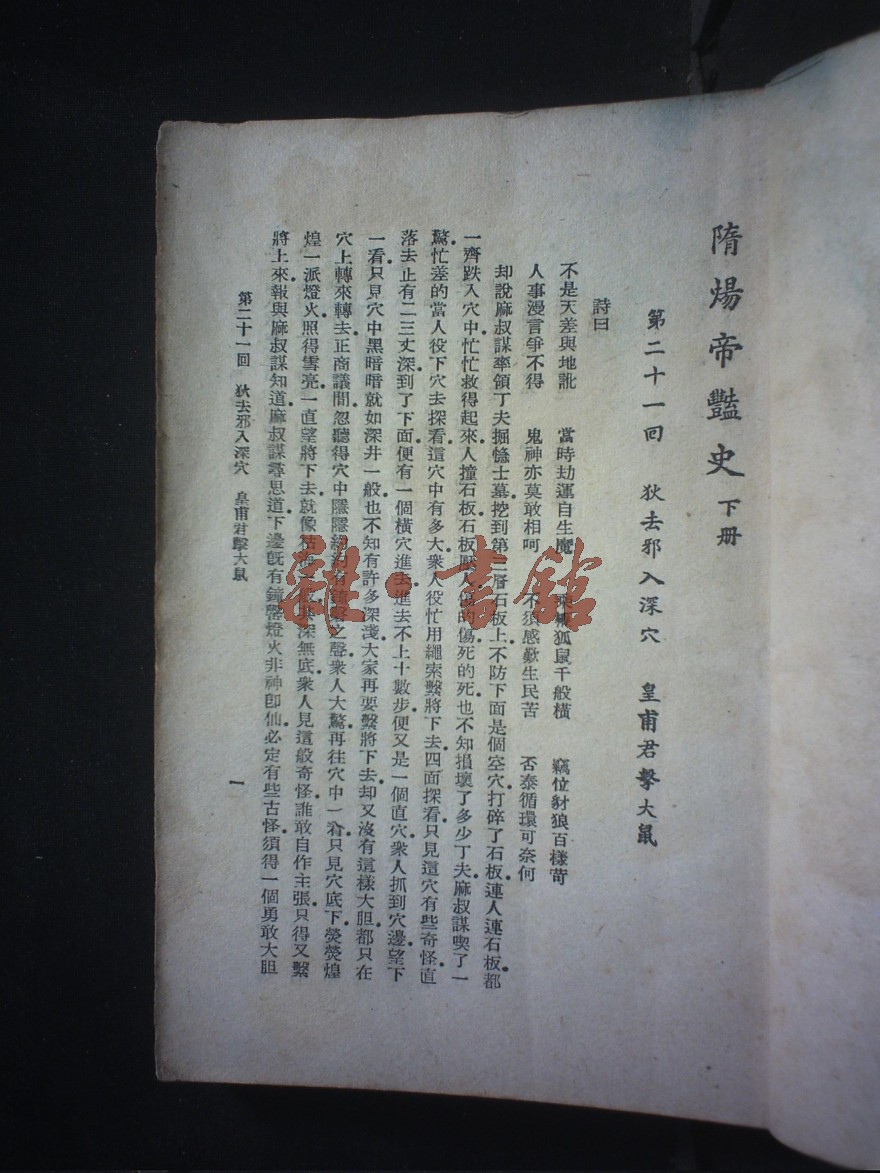 隋煬帝豔史 下册
第二十一回 狄去邪入深穴 皇甫君擊大鼠
詩曰
不是天差與地訛 當時劫運自生魔 狐鼠千般橫 竊位豺狼百樣苛
人事漫言爭不得 鬼神亦莫敢相呵 不須感歎生民苦 否泰循環可奈何
却說麻叔謀率領丁夫掘憸士墓挖到第二層石板上不防下面是個空穴打碎了石板連人連石板都
一齊跌入穴中忙忙救得起來人撞石板石板壓人傷的傷死的死也不知損壞了多少丁夫麻叔謀喫了一
驚忙差的當人役下穴去探看這穴中有多大衆人役忙用繩索繫將下去四面探看只見這穴有些奇怪直
落去止有二三丈深到了下面便有一個橫穴進去進去不上十數步便又是一個直穴衆人抓到穴邊望下
一看只見穴中黑暗暗就如深井一般也不知有許多深淺大家再要繫將下去却又沒有這樣大胆都只在
穴上轉來轉去正商議間忽聽得穴中隱隱約約有鐘磬之聲衆人大驚再往穴中一看只見穴底下熒熒煌
煌一派燈火照得雪亮一直望將下去就像枯海一般深無底衆人見這般奇怪誰敢自作主張只得又繫
將上來報與麻叔謀知道麻叔謀尋思道下邊旣有鐘磬燈火非神卽仙必定有些古怪須得一個勇敢大胆
第二十一回 狄去邪入深穴 皇甫君擊大鼠
一
雜·書館